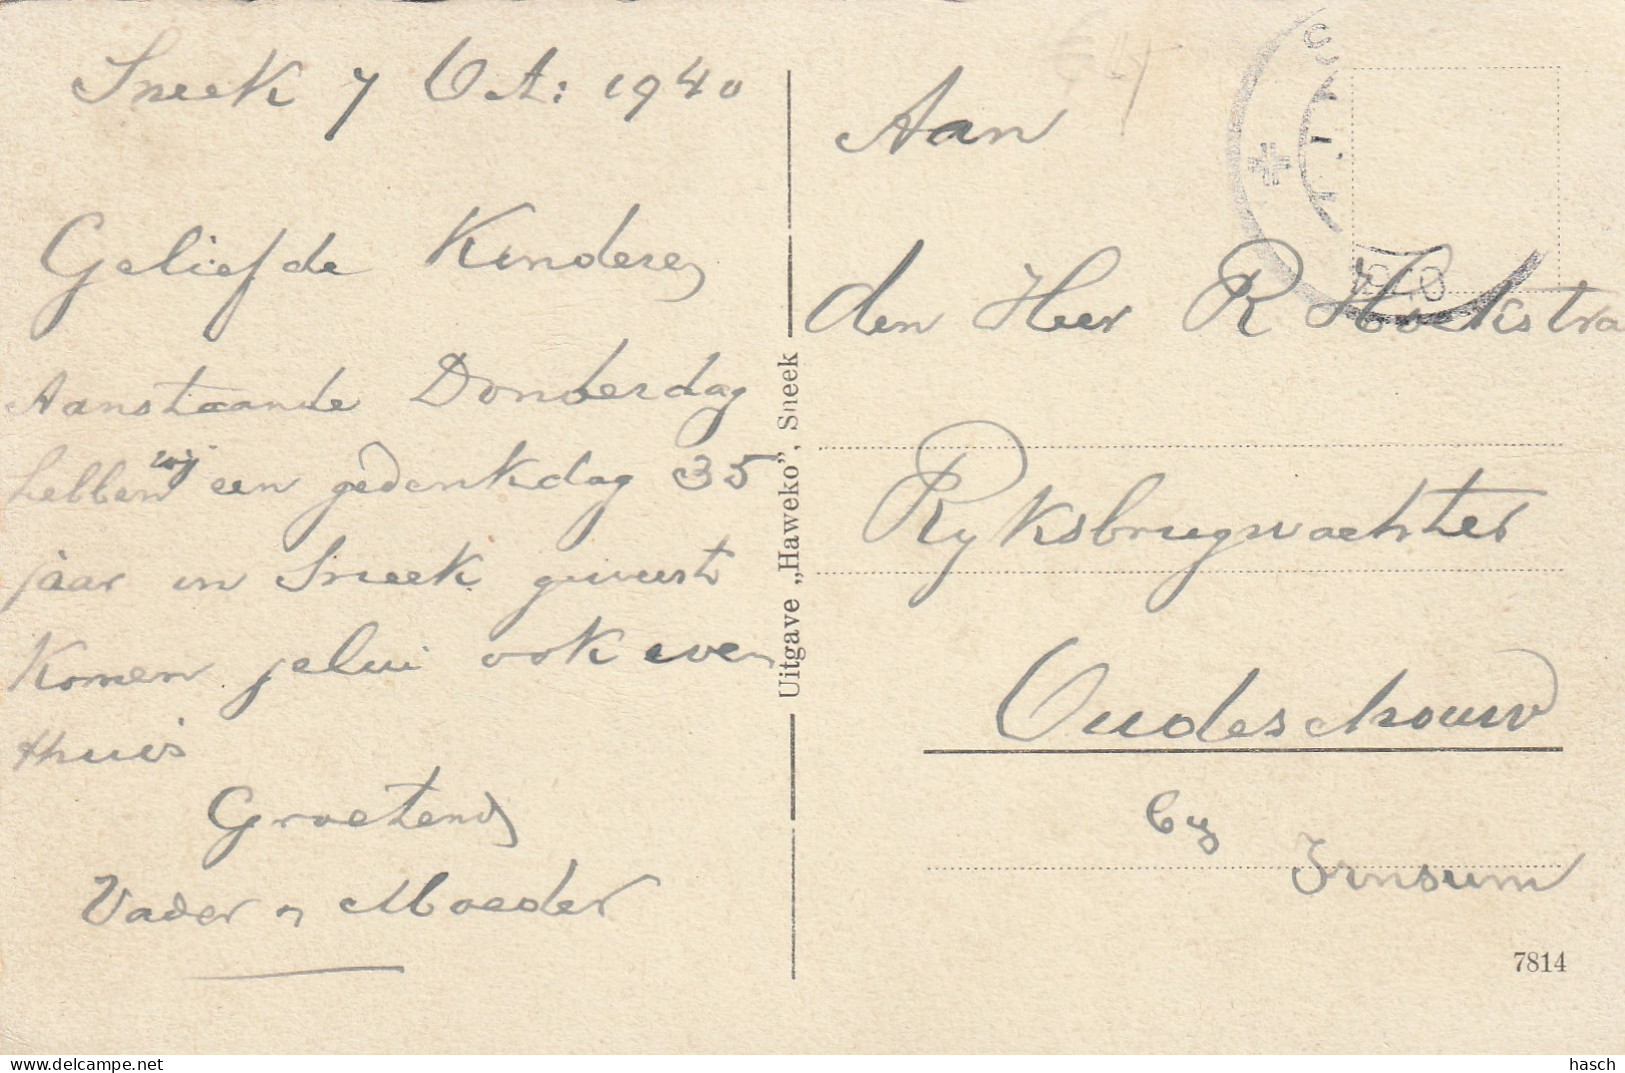 Sneek 7 Oct: 1940
Geliefde Kinderen
Aanstaande Donderdag
hebben wij een gedenkdag 35
jaar in Sneek geweest
Komen jelui ook even
thuis
Groetend
Vader en Moeder
Uitgave „Haweko”, Sneek
Aan
den Heer R Hoekstra
Ryksbrugwachter
Oudeschouw
by
Irnsum
1940
7814
delcampe.net
hasch